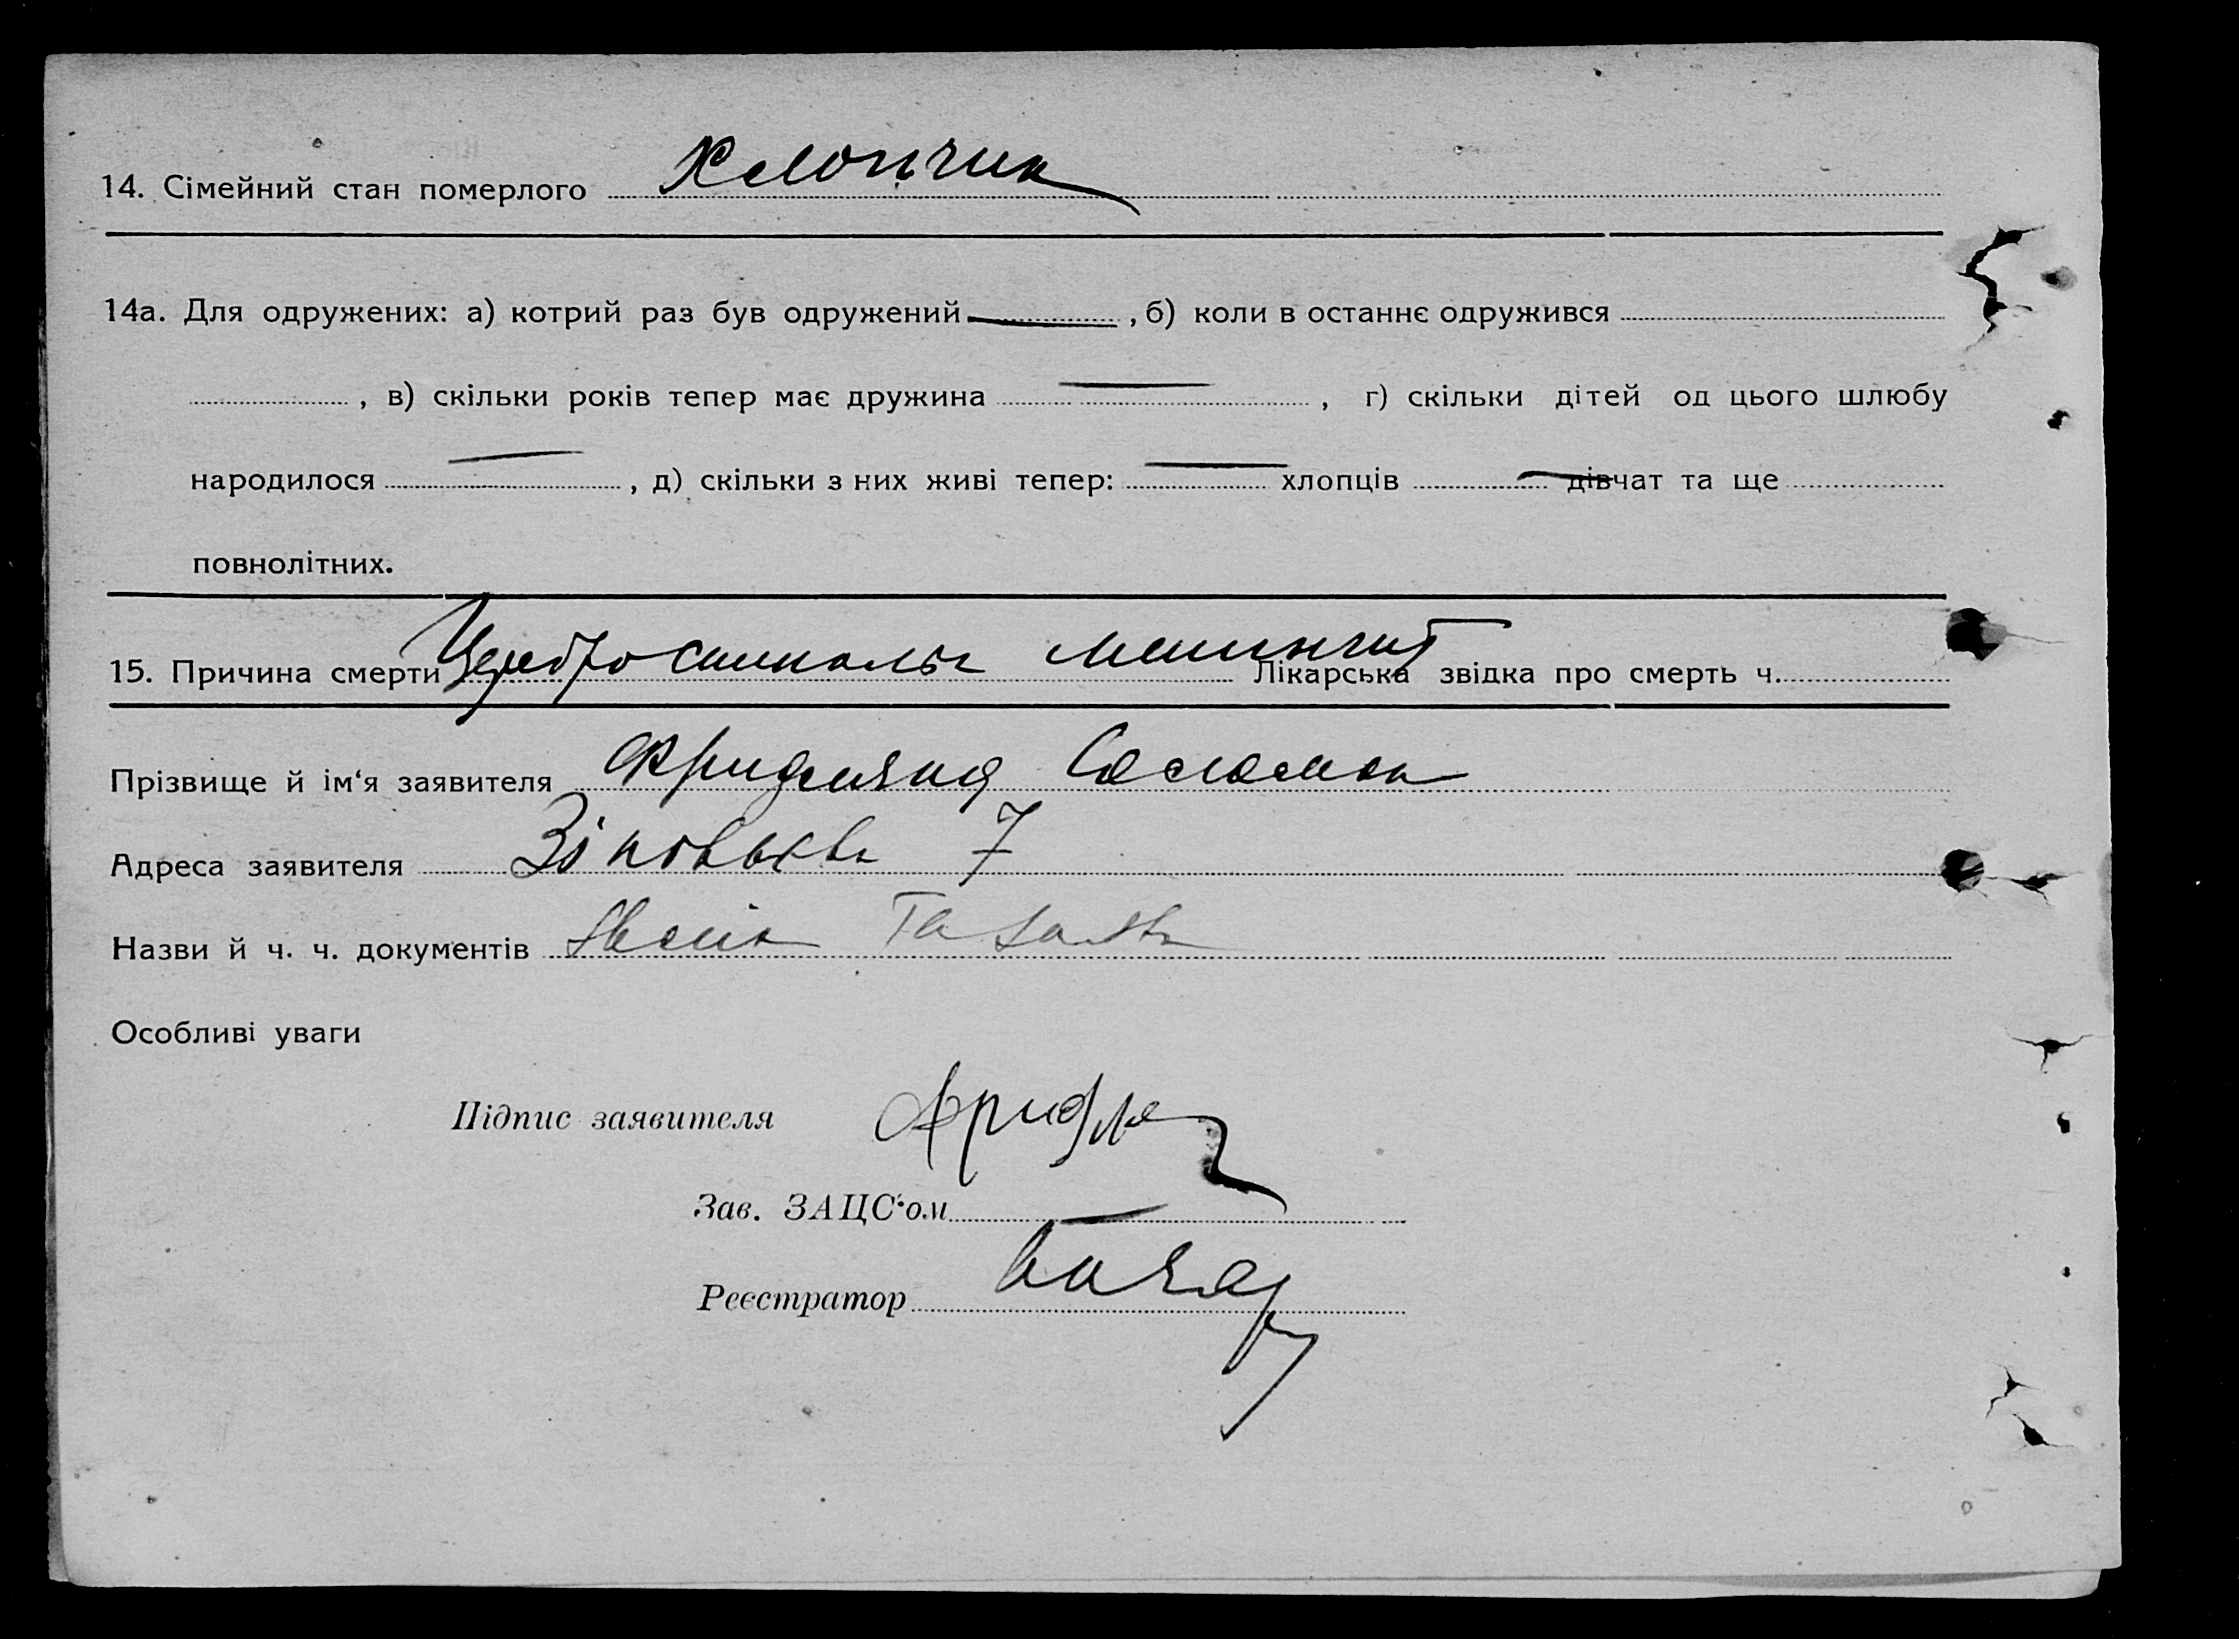 14. Сімейний стан померлого Хлопчик
14а. Для одружених: а) котрий раз був одружений — , б) коли в останнє одружився
, в) скільки років тепер має дружина — , г) скільки дітей од цього шлюбу
народилося — , д) скільки з них живі тепер: — хлопців — дівчат та ще
повнолітних.
15. Причина смерти Цереброспинальн менингит Лікарська звідка про смерть ч.
Прізвище й ім‘я заявителя Фридлянд Соломон
Адреса заявителя Зіновьєва 7
Назви й ч. ч. документів
Особливі уваги
Підпис заявителя Фридля
Зав. ЗАЦС‘ом —
Реєстратор